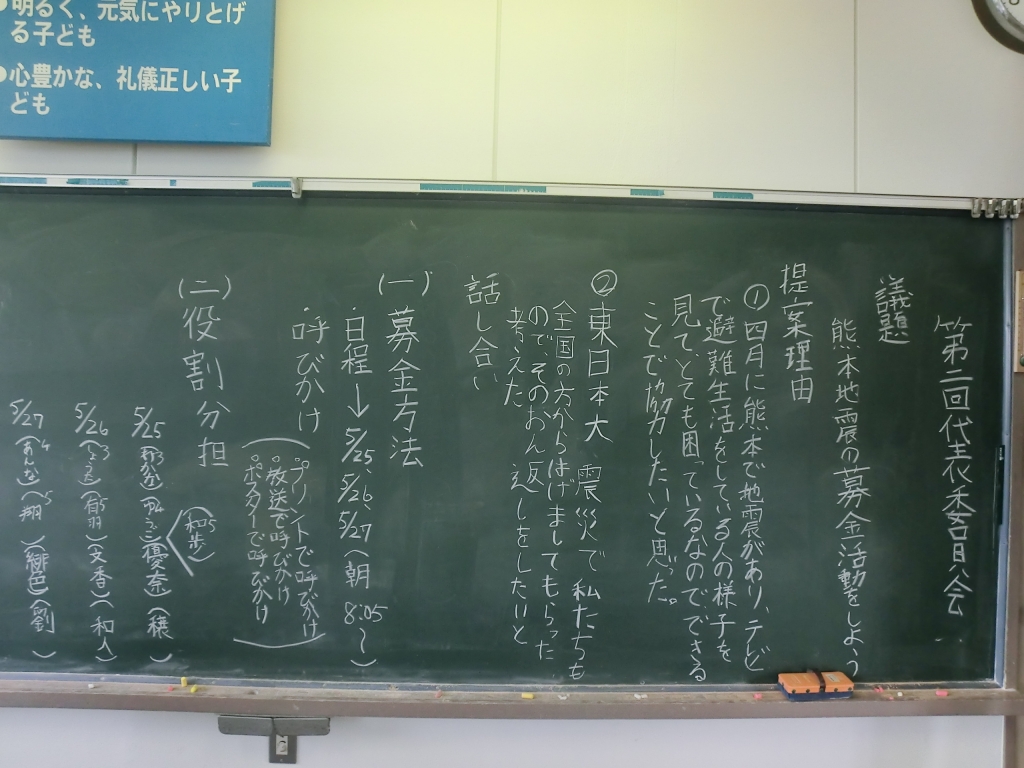 明るく、元気にやりとげ
る子ども
心豊かな、礼儀正しい子
ども
第二回代表委員会
議題
熊本地震の募金活動をしよう
提案理由
①四月に熊本で地震があり、テレビ
で避難生活をしている人の様子を
見て、とても困っているなのでできる
ことで協力したいと思った。
②東日本大震災で私たちも
全国の方からはげましてもらった
ので、そのおん返しをしたいと
考えた
話し合い
(一)募金方法
・日程→5/25、5/26、5/27(朝8:05〜)
・呼びかけ
・プリントで呼びかけ
・放送で呼びかけ
・ポスターで呼びかけ
(二)役割分担
(和歩)
5/25 優奈)(穣)
5/26 文香)(和人)
5/27 (翔)(緋色)(劉)